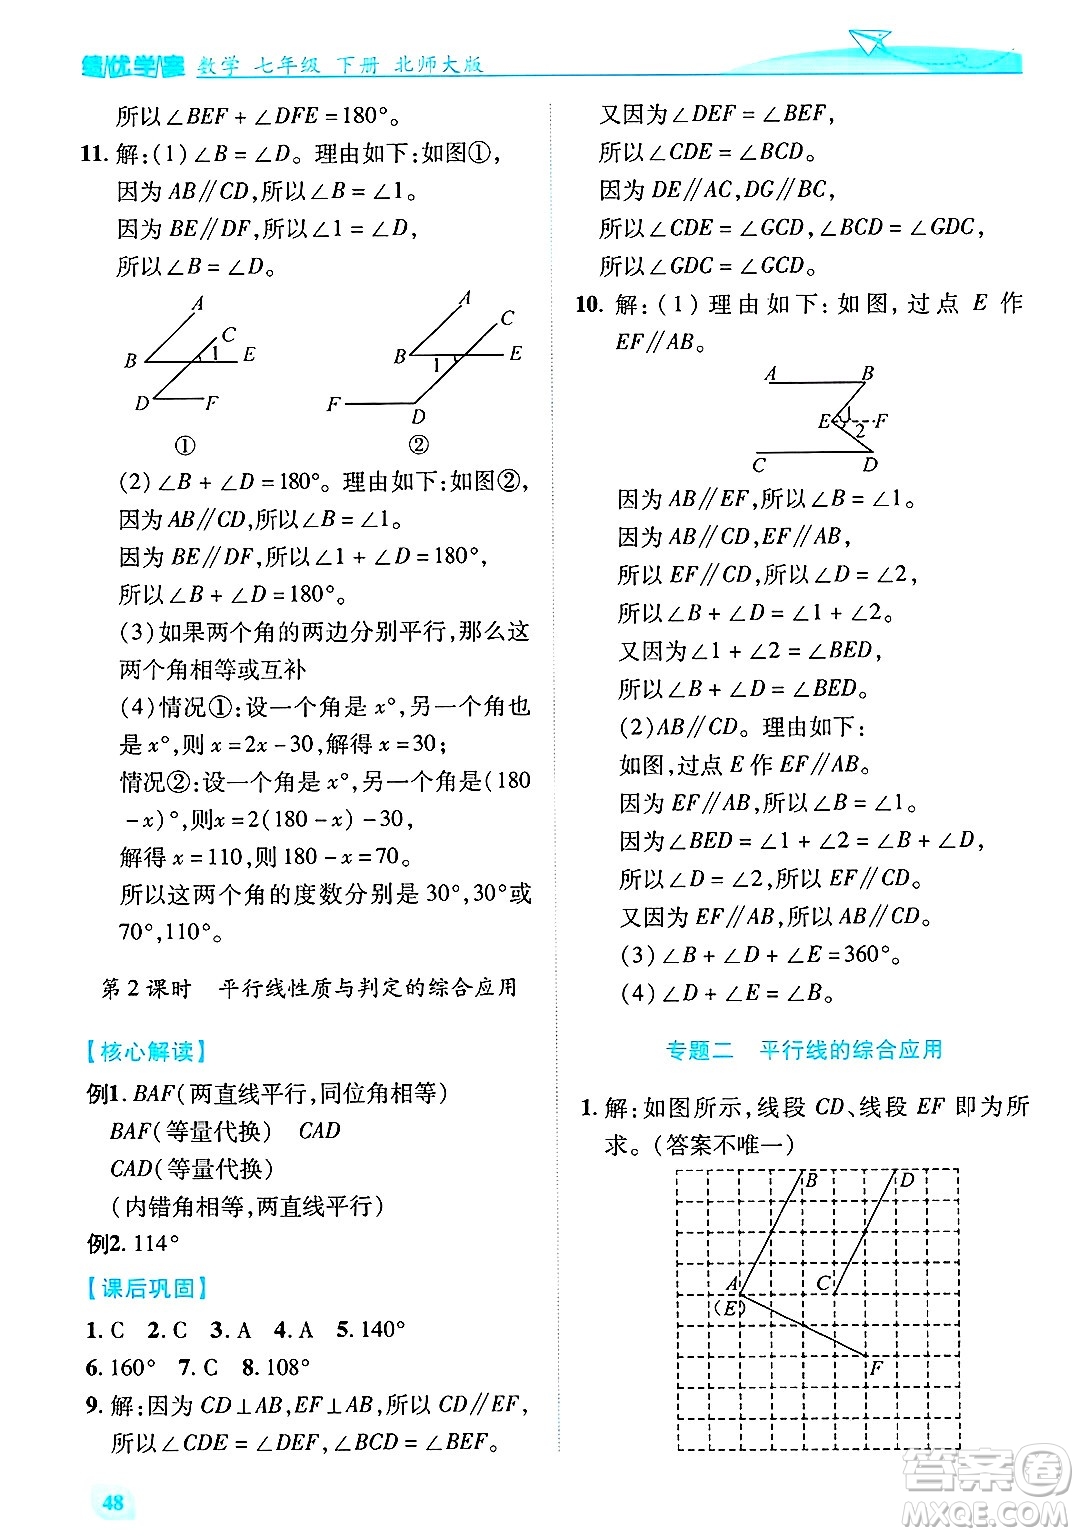 绩优学案 数学 七年级 下册 北师大版
所以∠BEF + ∠DFE = 180°。
11. 解:(1)∠B = ∠D。理由如下:如图①,
因为 AB∥CD,所以∠B = ∠1。
因为 BE∥DF,所以∠1 = ∠D,
所以∠B = ∠D。
A
C
B
1
E
D
F
①
A
C
B
1
E
F
D
②
(2)∠B + ∠D = 180°。理由如下:如图②,
因为 AB∥CD,所以∠B = ∠1。
因为 BE∥DF,所以∠1 + ∠D = 180°,
所以∠B + ∠D = 180°。
(3)如果两个角的两边分别平行,那么这
两个角相等或互补
(4)情况①:设一个角是 x°,另一个角也
是 x°,则 x = 2x - 30,解得 x = 30;
情况②:设一个角是 x°,另一个角是(180
- x)°,则x = 2(180 - x) - 30,
解得 x = 110,则 180 - x = 70。
所以这两个角的度数分别是 30°,30°或
70°,110°。
第 2 课时 平行线性质与判定的综合应用
【核心解读】
例1. BAF(两直线平行,同位角相等)
BAF(等量代换) CAD
CAD(等量代换)
(内错角相等,两直线平行)
例2. 114°
【课后巩固】
1. C 2. C 3. A 4. A 5. 140°
6. 160° 7. C 8. 108°
9. 解:因为 CD⊥AB,EF⊥AB,所以 CD∥EF,
所以∠CDE = ∠DEF,∠BCD = ∠BEF。
48
又因为∠DEF = ∠BEF,
所以∠CDE = ∠BCD。
因为 DE∥AC,DG∥BC,
所以∠CDE = ∠GCD,∠BCD = ∠GDC,
所以∠GDC = ∠GCD。
10. 解:(1)理由如下:如图,过点 E 作
EF∥AB。
A
B
E
1
2
F
C
D
因为 AB∥EF,所以∠B = ∠1。
因为 AB∥CD,EF∥AB,
所以 EF∥CD,所以∠D = ∠2,
所以∠B + ∠D = ∠1 + ∠2。
又因为∠1 + ∠2 = ∠BED,
所以∠B + ∠D = ∠BED。
(2)AB∥CD。理由如下:
如图,过点 E 作 EF∥AB。
因为 EF∥AB,所以∠B = ∠1。
因为∠BED = ∠1 + ∠2 = ∠B + ∠D,
所以∠D = ∠2,所以 EF∥CD。
又因为 EF∥AB,所以 AB∥CD。
(3)∠B + ∠D + ∠E = 360°。
(4)∠D + ∠E = ∠B。
专题二 平行线的综合应用
1. 解:如图所示,线段 CD、线段 EF 即为所
求。(答案不唯一)
B
D
A
(E)
C
F
答案圈
MXQE.COM